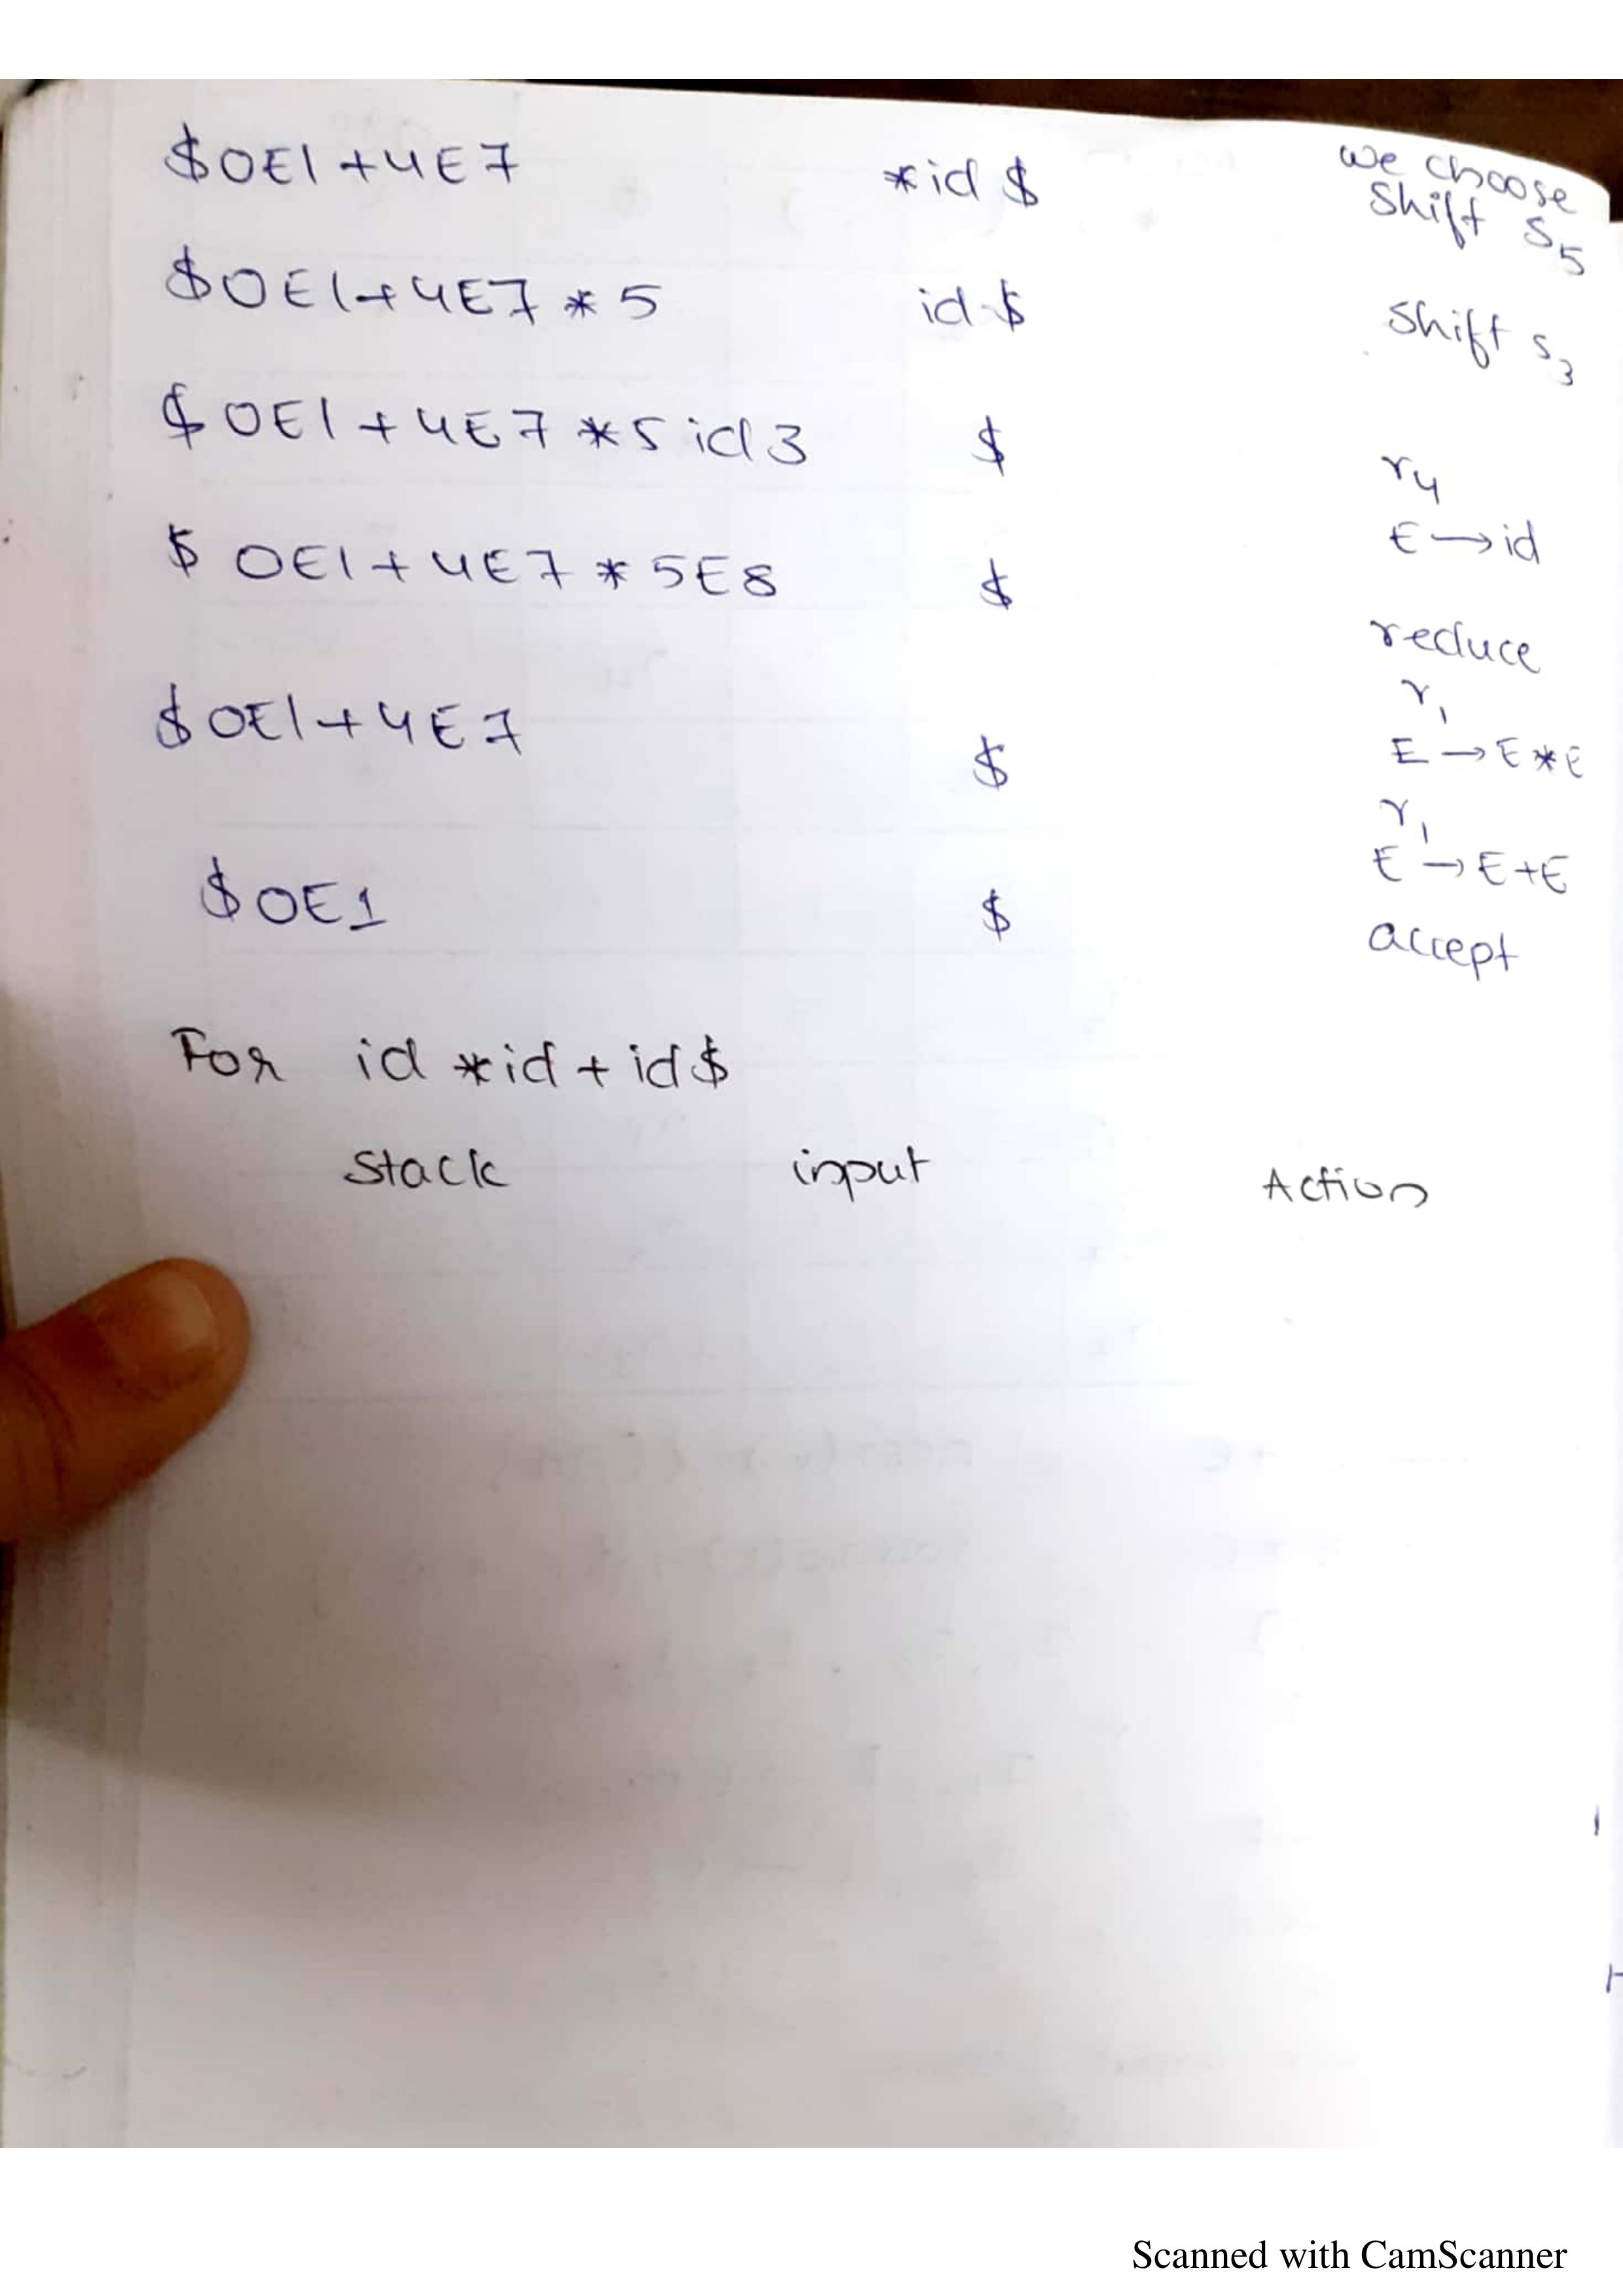 $0E1+4E7 *id $ we choose
Shift S5
$0E1+4E7*5 id $ Shift S3
$0E1+4E7*5id3 $ r4
E→id
$0E1+4E7*5E8 $
reduce
r1
$0E1+4E7 $ E→E*E
r1
E→E+E
$0E1 $ accept
For id*id+id$
Stack input Action
Scanned with CamScanner